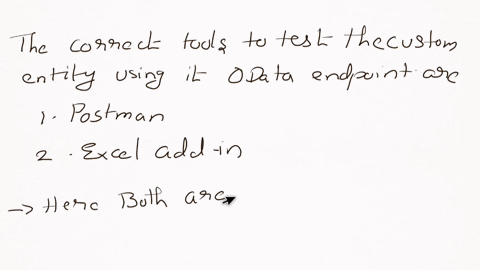 The correct tools to test the custom
entity using it OData endpoint are
1. Postman
2. Excel add-in
→ Here Both are